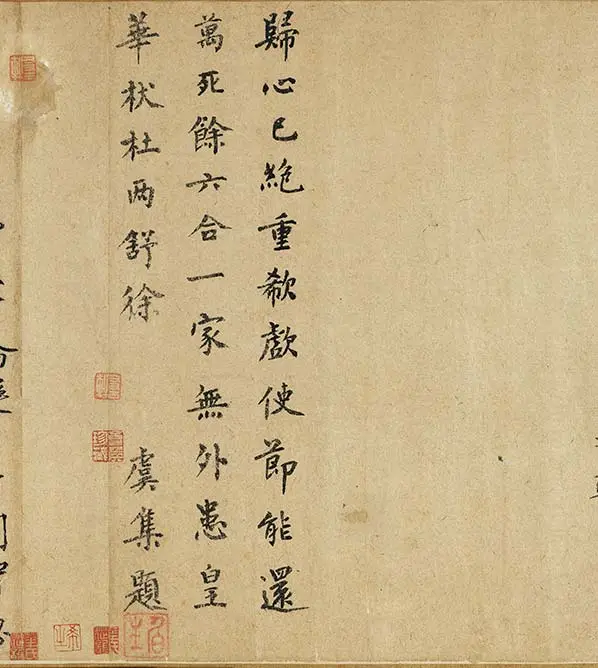 歸心已絶重欷歔使節能還
萬死餘六合一家無外患皇
華杕杜两舒徐
虞集題